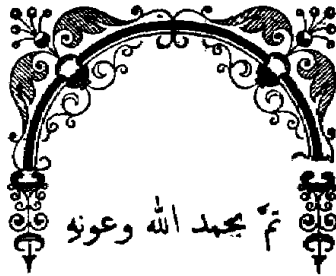 تمَّ بحمد الله وعونهِ